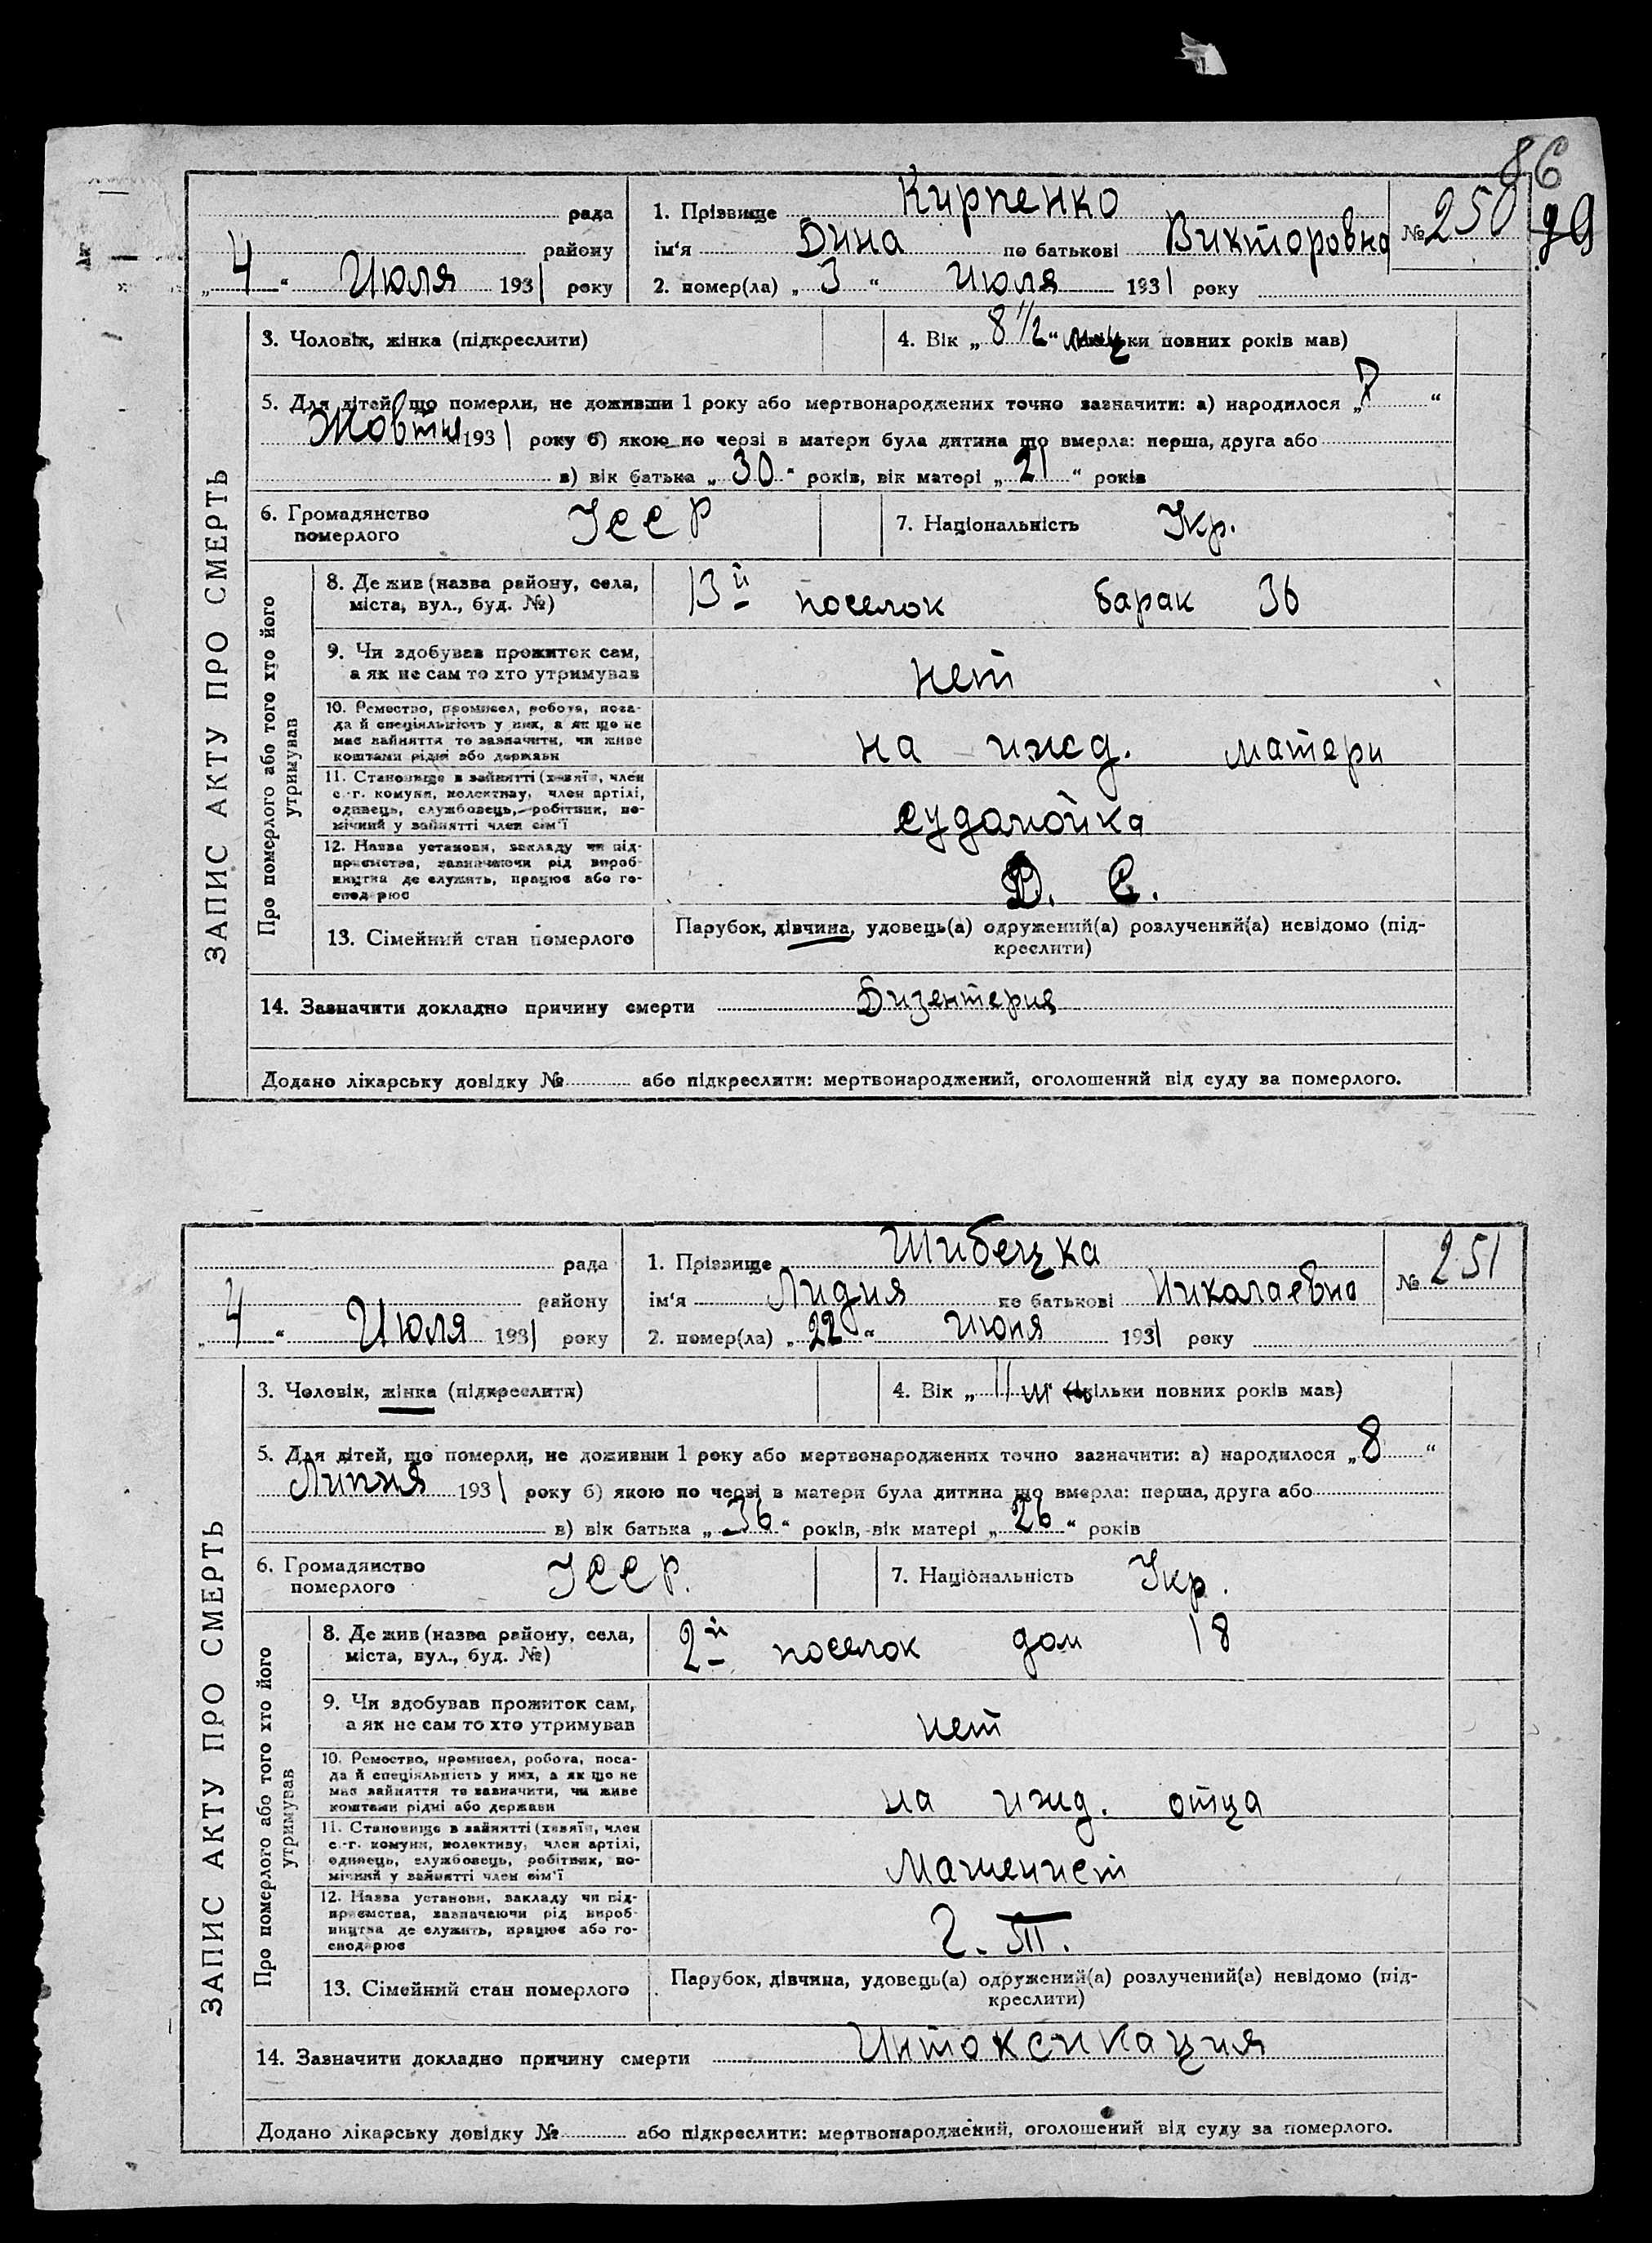 86
рада
1. Прізвище Кирпенко
№ 250 79
району
ім‘я Дина по батькові Викторовна
„4“ Июля 1931 року
2. помер(ла) „3“ Июля 1931 року
ЗАПИС АКТУ ПРО СМЕРТЬ
3. Чоловік, жінка (підкреслити)
4. Вік „8 1/2“ повних років мав)
5. Для дітей, що померли, не доживши 1 року або мертвонароджених точно зазначити: а) народилося „
Жовтня 1931 року б) якою по черзі в матери була дитина що вмерла: перша, друга або
в) вік батька „30“ років, вік матері „21“ років
6. Громадянство померлого УССР
7. Національність Укр.
Про померлого або того хто його утримував
8. Де жив (назва району, села, міста, вул., буд. №)
13й поселок барак 36
9. Чи здобував прожиток сам, а як не сам то хто утримував
нет
10. Ремество, промисел, робота, поса-
да й спеціяльність у них, а як що не
має зайняття то зазначити, чи живе
коштами рідні або держави
на ижд. матери
11. Становище в зайнятті (хазяїн, член
с.-г. комуни, колективу, член артілі,
одинець, службовець, робітник, по-
мічний у зайнятті член сім‘ї
судомойка
12. Назва установи, закладу чи під-
приємства, зазначаючи рід вироб-
ництва де служить, працює або го-
сподарює
Д. С.
13. Сімейний стан померлого
Парубок, дівчина, удовець(а) одружений(а) розлучений(а) невідомо (під-
креслити)
14. Зазначити докладно причину смерти Дизентерия
Додано лікарську довідку № або підкреслити: мертвонароджений, оголошений від суду за померлого.
рада
1. Прізвище Шибецка
№ 251
району
ім‘я Лидия по батькові Николаевна
„4“ Июля 1931 року
2. помер(ла) „22“ июня 1931 року
ЗАПИС АКТУ ПРО СМЕРТЬ
3. Чоловік, жінка (підкреслити)
4. Вік „11 м (скільки повних років мав)
5. Для дітей, що померли, не доживши 1 року або мертвонароджених точно зазначити: а) народилося „8“
Липня 1931 року б) якою по черзі в матери була дитина що вмерла: перша, друга або
в) вік батька „36“ років, вік матері „26“ років
6. Громадянство померлого УССР.
7. Національність Укр.
Про померлого або того хто його утримував
8. Де жив (назва району, села, міста, вул., буд. №)
2й поселок дом 18
9. Чи здобував прожиток сам, а як не сам то хто утримував
нет
10. Ремество, промисел, робота, поса-
да й спеціяльність у них, а як що не
має зайняття то зазначити, чи живе
коштами рідні або держави
на ижд. отца
11. Становище в зайнятті (хазяїн, член
с.-г. комуни, колективу, член артілі,
одинець, службовець, робітник, по-
мічний у зайнятті член сім‘ї
Машенист
12. Назва установи, закладу чи під-
приємства, зазначаючи рід вироб-
ництва де служить, працює або го-
сподарює
Г. Т.
13. Сімейний стан померлого
Парубок, дівчина, удовець(а) одружений(а) розлучений(а) невідомо (під-
креслити)
14. Зазначити докладно причину смерти Интоксикация
Додано лікарську довідку № або підкреслити: мертвонароджений, оголошений від суду за померлого.